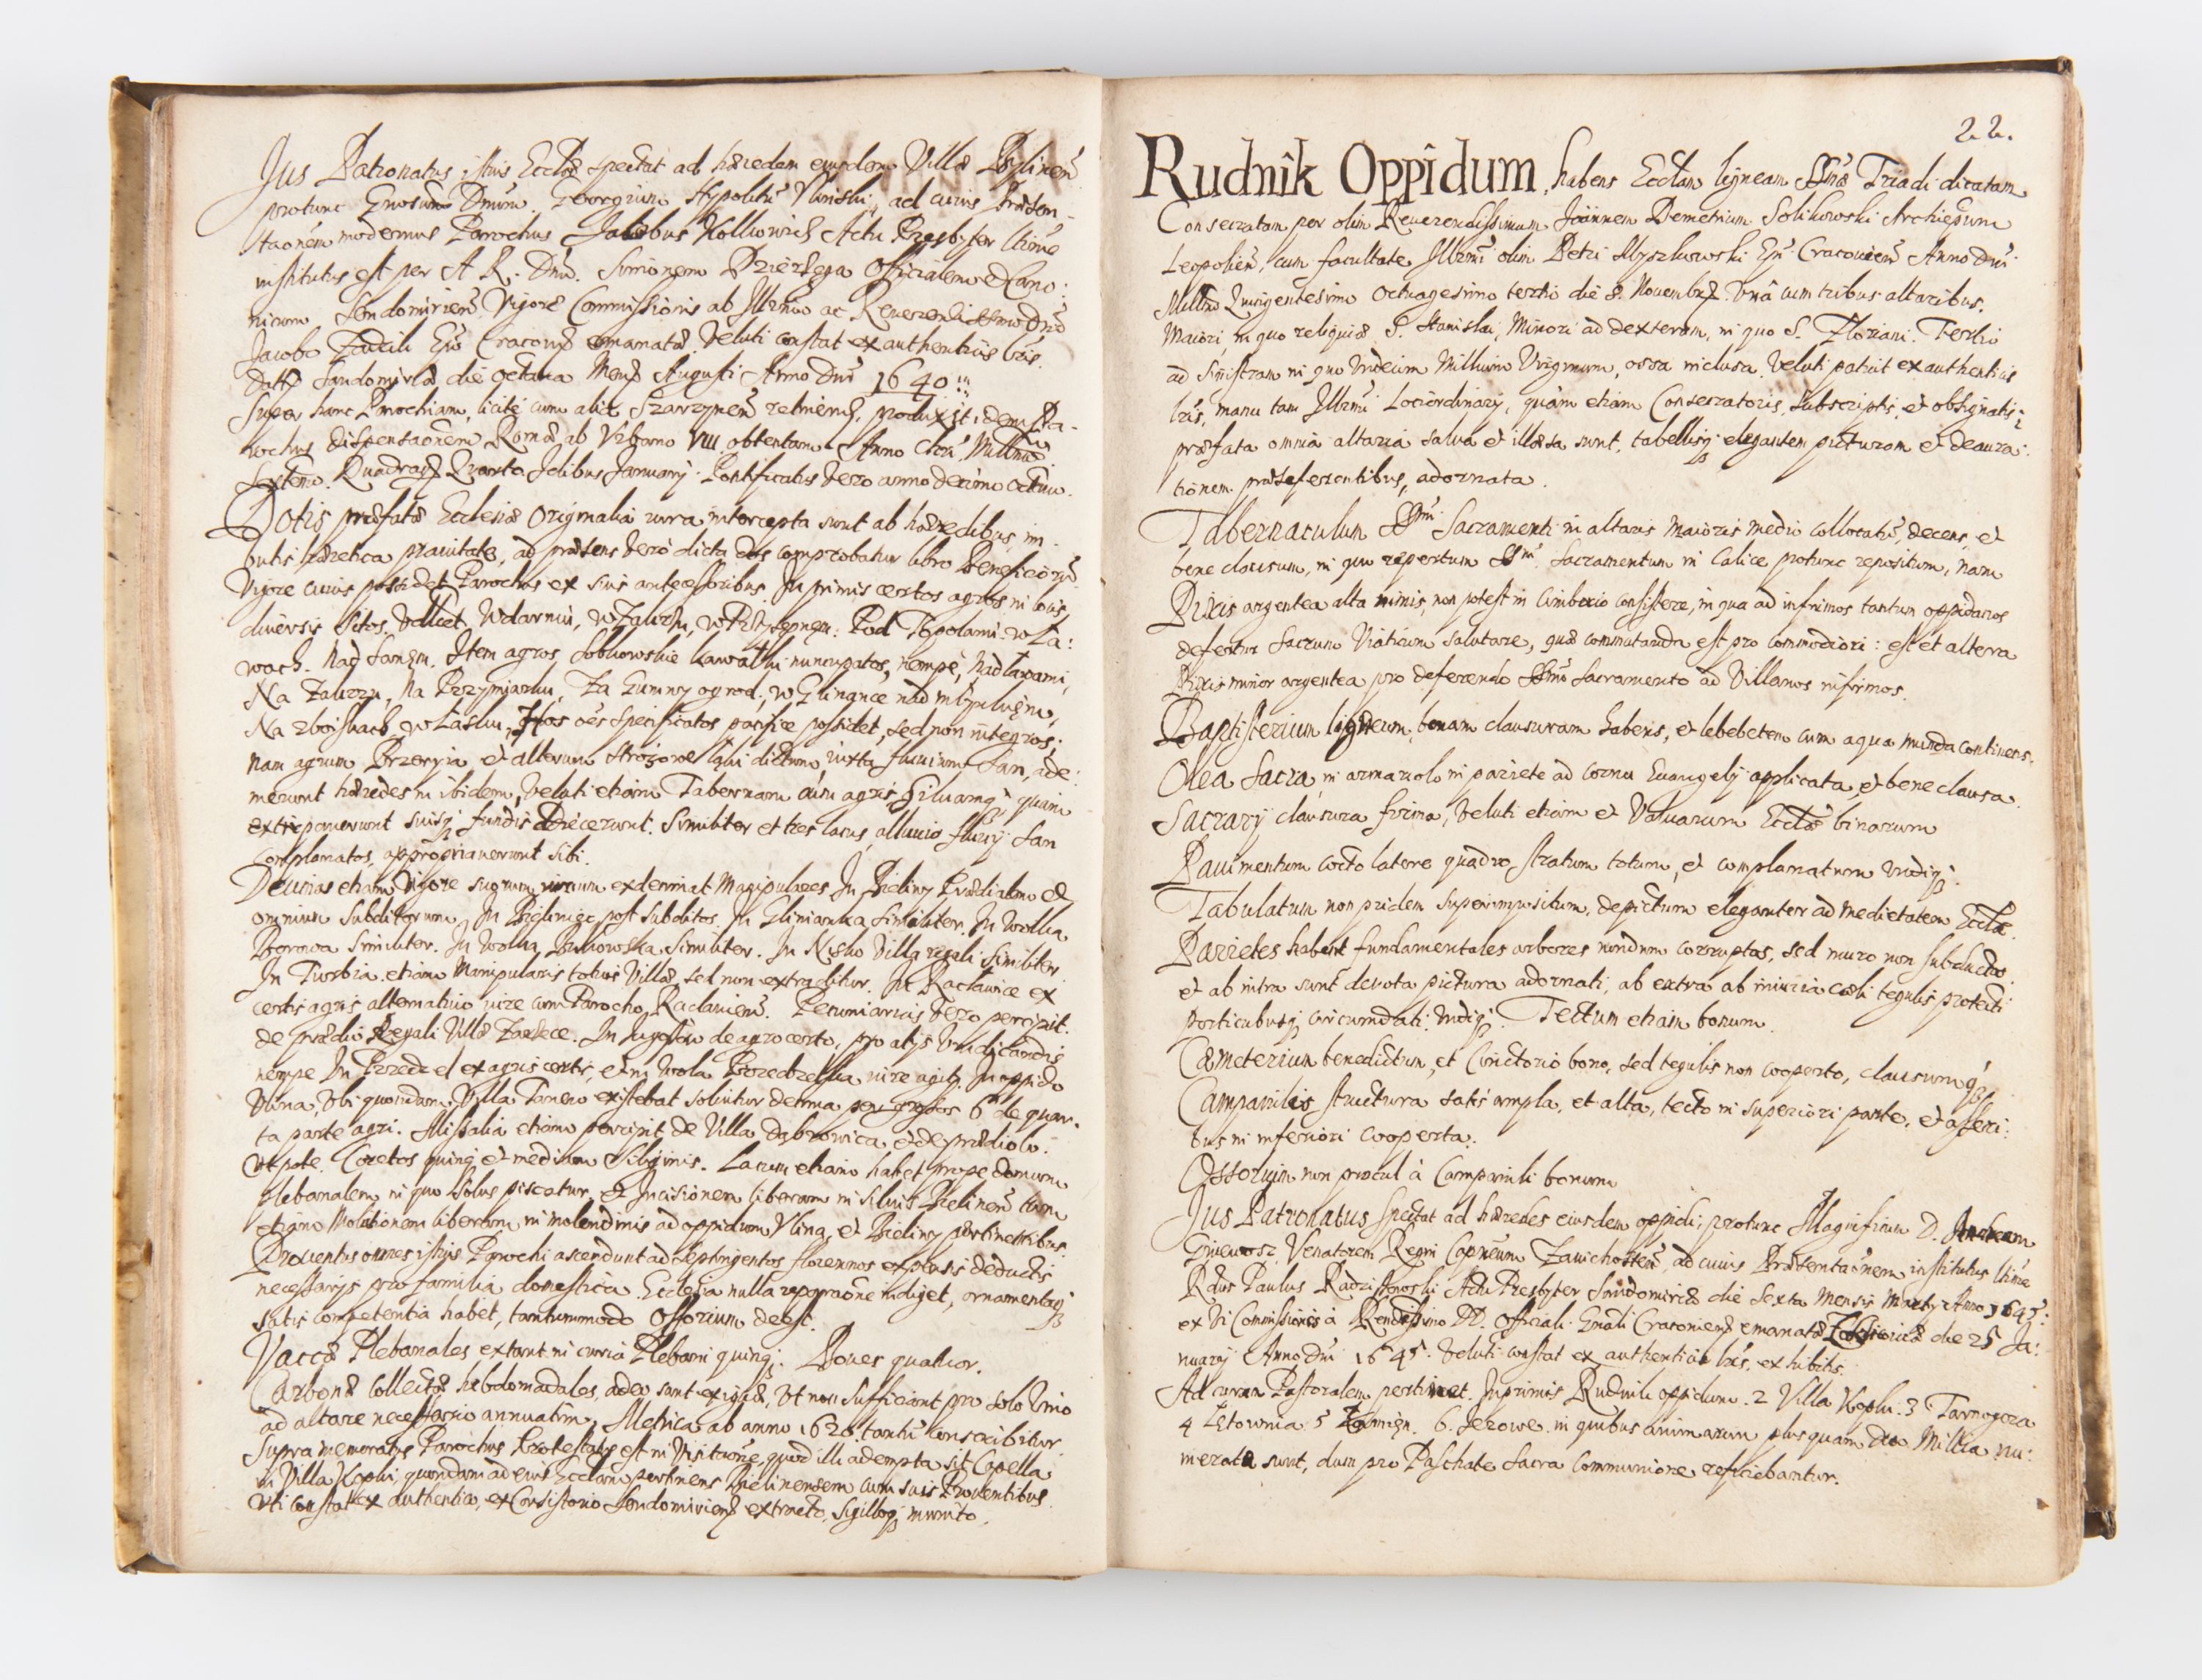 Jus Patronatus istius Ecclæ spectat ad hæredem eiusdem Villæ Bielinen̄
protunc Gnosum Dnum. Georgium Hypolitū Ulinski, ad cuius Præsen-
taōnem modernus Parochus Jacobus Kollwowicz Actu Presbyter ltime
institutus est per A. R. Dnū. Simonem Officialem et Cano:
nicum Sendomirien̄. Vigore Commissionis ab Illrmo ac Reverendissimo Dnō
Jacobo Zadzik Epō Cracouien̄ emanatæ. Veluti constat ex authenticis lrīs.
Dattis Sandomiriæ die octaua Mens̄ Augusti Anno Dnī 1640
Super hanc Parochiam, licitè cum alia Szarzynen̄ retinend, produxit idem Pa-
rochus dispensaōnem Romæ ab Urbano VIII obtentam Anno Dnī Millmo
Sexcentmo. Quadrag̃ Quarto Idibus Januarij. Pontificatus vero anno decimo octauo.
Dotis præfatæ Ecclesiæ originalia iura intercepta sunt ab hæredibus, im-
butis hæretica prauitate, ad præsens vero dicta dos comprobatur libro Beneficiorū
Vigore cuius possidet Parochus ex suis antecessoribus. In primis certos agros in locis
diuersis sitos. Vdlicet. W darniu, w Zaurzu, w Pod Topolami w Ła:
wach. Nad Sanęm. Item agros Sobkowskie kawałki nuncupatos, nempe, Nad łazami,
Na Zaurzu, Na Przymiarku, Za Gumny ogrod, w Gliniance nad młynkięm,
Na zboisкach, w Łasku, Hos oēs specificatos pacifice possidet, sed non integros;
nam agrum Przeryia, et alterum Strożowe łąki dictum, iuxta fluuium San, ade:
merunt hæredes in ibidem, veluti etiam Tabernam cum agris, siluamq̃ quam
extirpauerunt suisq̃ fundis adiecerunt. Similiter et tres lacus, alluuio fluuij San
complanatos, appropriauerunt sibi.
Decimas etiam vigore suorum iurium exdecimat Manipulares In Bieliny Prædialem et
omnium subditorum, In Bielinięc post subditos. In Glinianka similiter. In Wolka
Borowa similiter. In Wolka Bukowska similiter. In Nisko Villa regali similiter
In Turbia etiam Manipularis totius Villæ sed non extraditur. In Racławice ex
certis agris alternatiuo iure cum Parocho Raclauien̄. Pecuniarias vero percipit.
de prædio Regali Villæ Zarzece. In de agro certo, pro alijs vindicandis
nempe In Przedzel ex agris certis, et in Wola Przedzelska iure agit. In oppido
Ulina, vbi quondam Villa Tanew existebat soluitur decima per grossos 6 de quar.
ta parte agri. Missalia etiam percipit de Villa Dąbrowica et de prædiolo.
Vt pote. Coretos quinq̃ et medium Siliginis. Lacum etiam habet prope domum
Plebanalem in quo solus piscatur, et Incisionem liberam in siluis Bielinen̄ tum
etiam Molitionem liberam in molendinis ad oppidum Ulina, et Bieliny pertinentibus.
Prouentus omnes istius Parochi ascendunt ad septingentos florennos expensis deductis
necessarijs pro familia domestica. Ecclesia nulla reparaōne indiget, ornamentaq̃
satis competentia habet, tantummodo Ossorium deest.
Vaccæ Plebanales extant in curia Plebani quinq̃. Boues quatuor.
Carbonæ collectæ hebdomadales, adeo sunt exiguæ, vt non sufficiant pro solo vino
ad altare necessario annuatim. Metrica ab anno 1620 tantū conscribitur.
Supra memoratus Parochus Protestatus est in Visitaōne, quod illi adempta sit Capella
in Villa Kopki, quondam ad eius Ecclam pertinens Bielinensem cum suis Prouentibus
vti constat ex authentico, ex Consistorio Sendomirien̄ extracto, Sigilloq̃ munito.
22.
Rudnik Oppidum, habens Ecclam ligneam SSmæ Triadi dicatam
Consecratam per olim Reuerendissimum Joannem Demetrium Solikowski Archiepum
Leopolien̄, cum facultate Illrmi olim Petri Myszkowski Epī Cracouien̄ Anno Dnī
Millmo Quingentesimo Octuagesimo tertio die 8. Nouembr̃. Vnâ cum tribus altaribus.
Maiori, in quo reliquiæ S. Stanislai, Minori ad dexteram, in quo S. Floriani. Tertio
ad Sinistram in quo Vndecim Millium Virginum, ossa inclusa. Veluti patuit ex authenticis
lrīs, manu tam Illrmi Lociordinarij, quàm etiam Consecratoris, subscriptis, et obsignatis:
præfata omnia altaria salua et illæsa sunt, tabellisq̃ elegantem picturam et deaura:
tionem præseferentibus, adornata.
Tabernaculum SSmi Sacramenti in altaris Maioris medio collocatū, decens, et
bene clausum, in quo repertum SSm̃ Sacramentum in Calice protunc repositum, nam
Pixis argentea alta nimis, non potest in Cimborio consistere, in qua ad infirmos tantum oppidanos
defertur Sacrum Viaticum salutare, quæ commutanda est pro commodiori: est et altera
Pixis minor argentea pro deferendo SSmo Sacramento ad Villanos infirmos.
Baptisterium ligneum, bonam clausuram habens, et lebetem cum aqua munda continens.
Olea Sacra, in armariolo in pariete ad cornu Euangelij applicata, et bene clausa.
Sacrarij clausura firma, veluti etiam et Valuarum Ecclæ binarum
Pauimentum cocto latere quadro stratum totum, et complanatum vndiq̃.
Tabulatum non pridem superimpositum, depictum eleganter ad medietatem Ecclæ.
Parietes habent fundamentales arbores nondum corruptas, sed muro non subductas
et ab intra sunt deuota pictura adornati, ab extra ab iniuria cæli tegulis protecti
porticubusq̃ circumdati vndiq̃. Tectum etiam bonum.
Cæmeterium benedictum, et Cinctorio bono, sed tegulis non cooperto, clausumq̃
Campanilis structura satis ampla, et alta, tecto in superiori parte, et asseri:
bus in inferiori cooperta.
Ossorium non procul à Campanili bonum
Jus Patronatus spectat ad hæredes eiusdem oppidi, protunc Magnificum D. Andream
Gniewosz, Venatorem Regni Capneum Zawichosten̄, ad cuius Præsentaōnem institutus ltime
Rdus Paulus Actu Presbyter Sendomiriæ die Sexta Mensis Martij Anno 1645:
ex vi Commissionis à Rendissimo D. Officiali Gnali Cracouien̄ emanatæ die 25 Ja:
nuarij Anno Dnī 1645. Veluti constat ex authenticis lrīs, exhibitis.
Ad curam Pastoralem pertinet. Inprimis Rudnik oppidum. 2 Villa Kopki. 3 Tarnogora
4 Łetownia 5 6. Jezowe. in quibus animarum plus quam duo Millia nu:
merata sunt, dum pro Paschate sacra Communione reficiebantur.